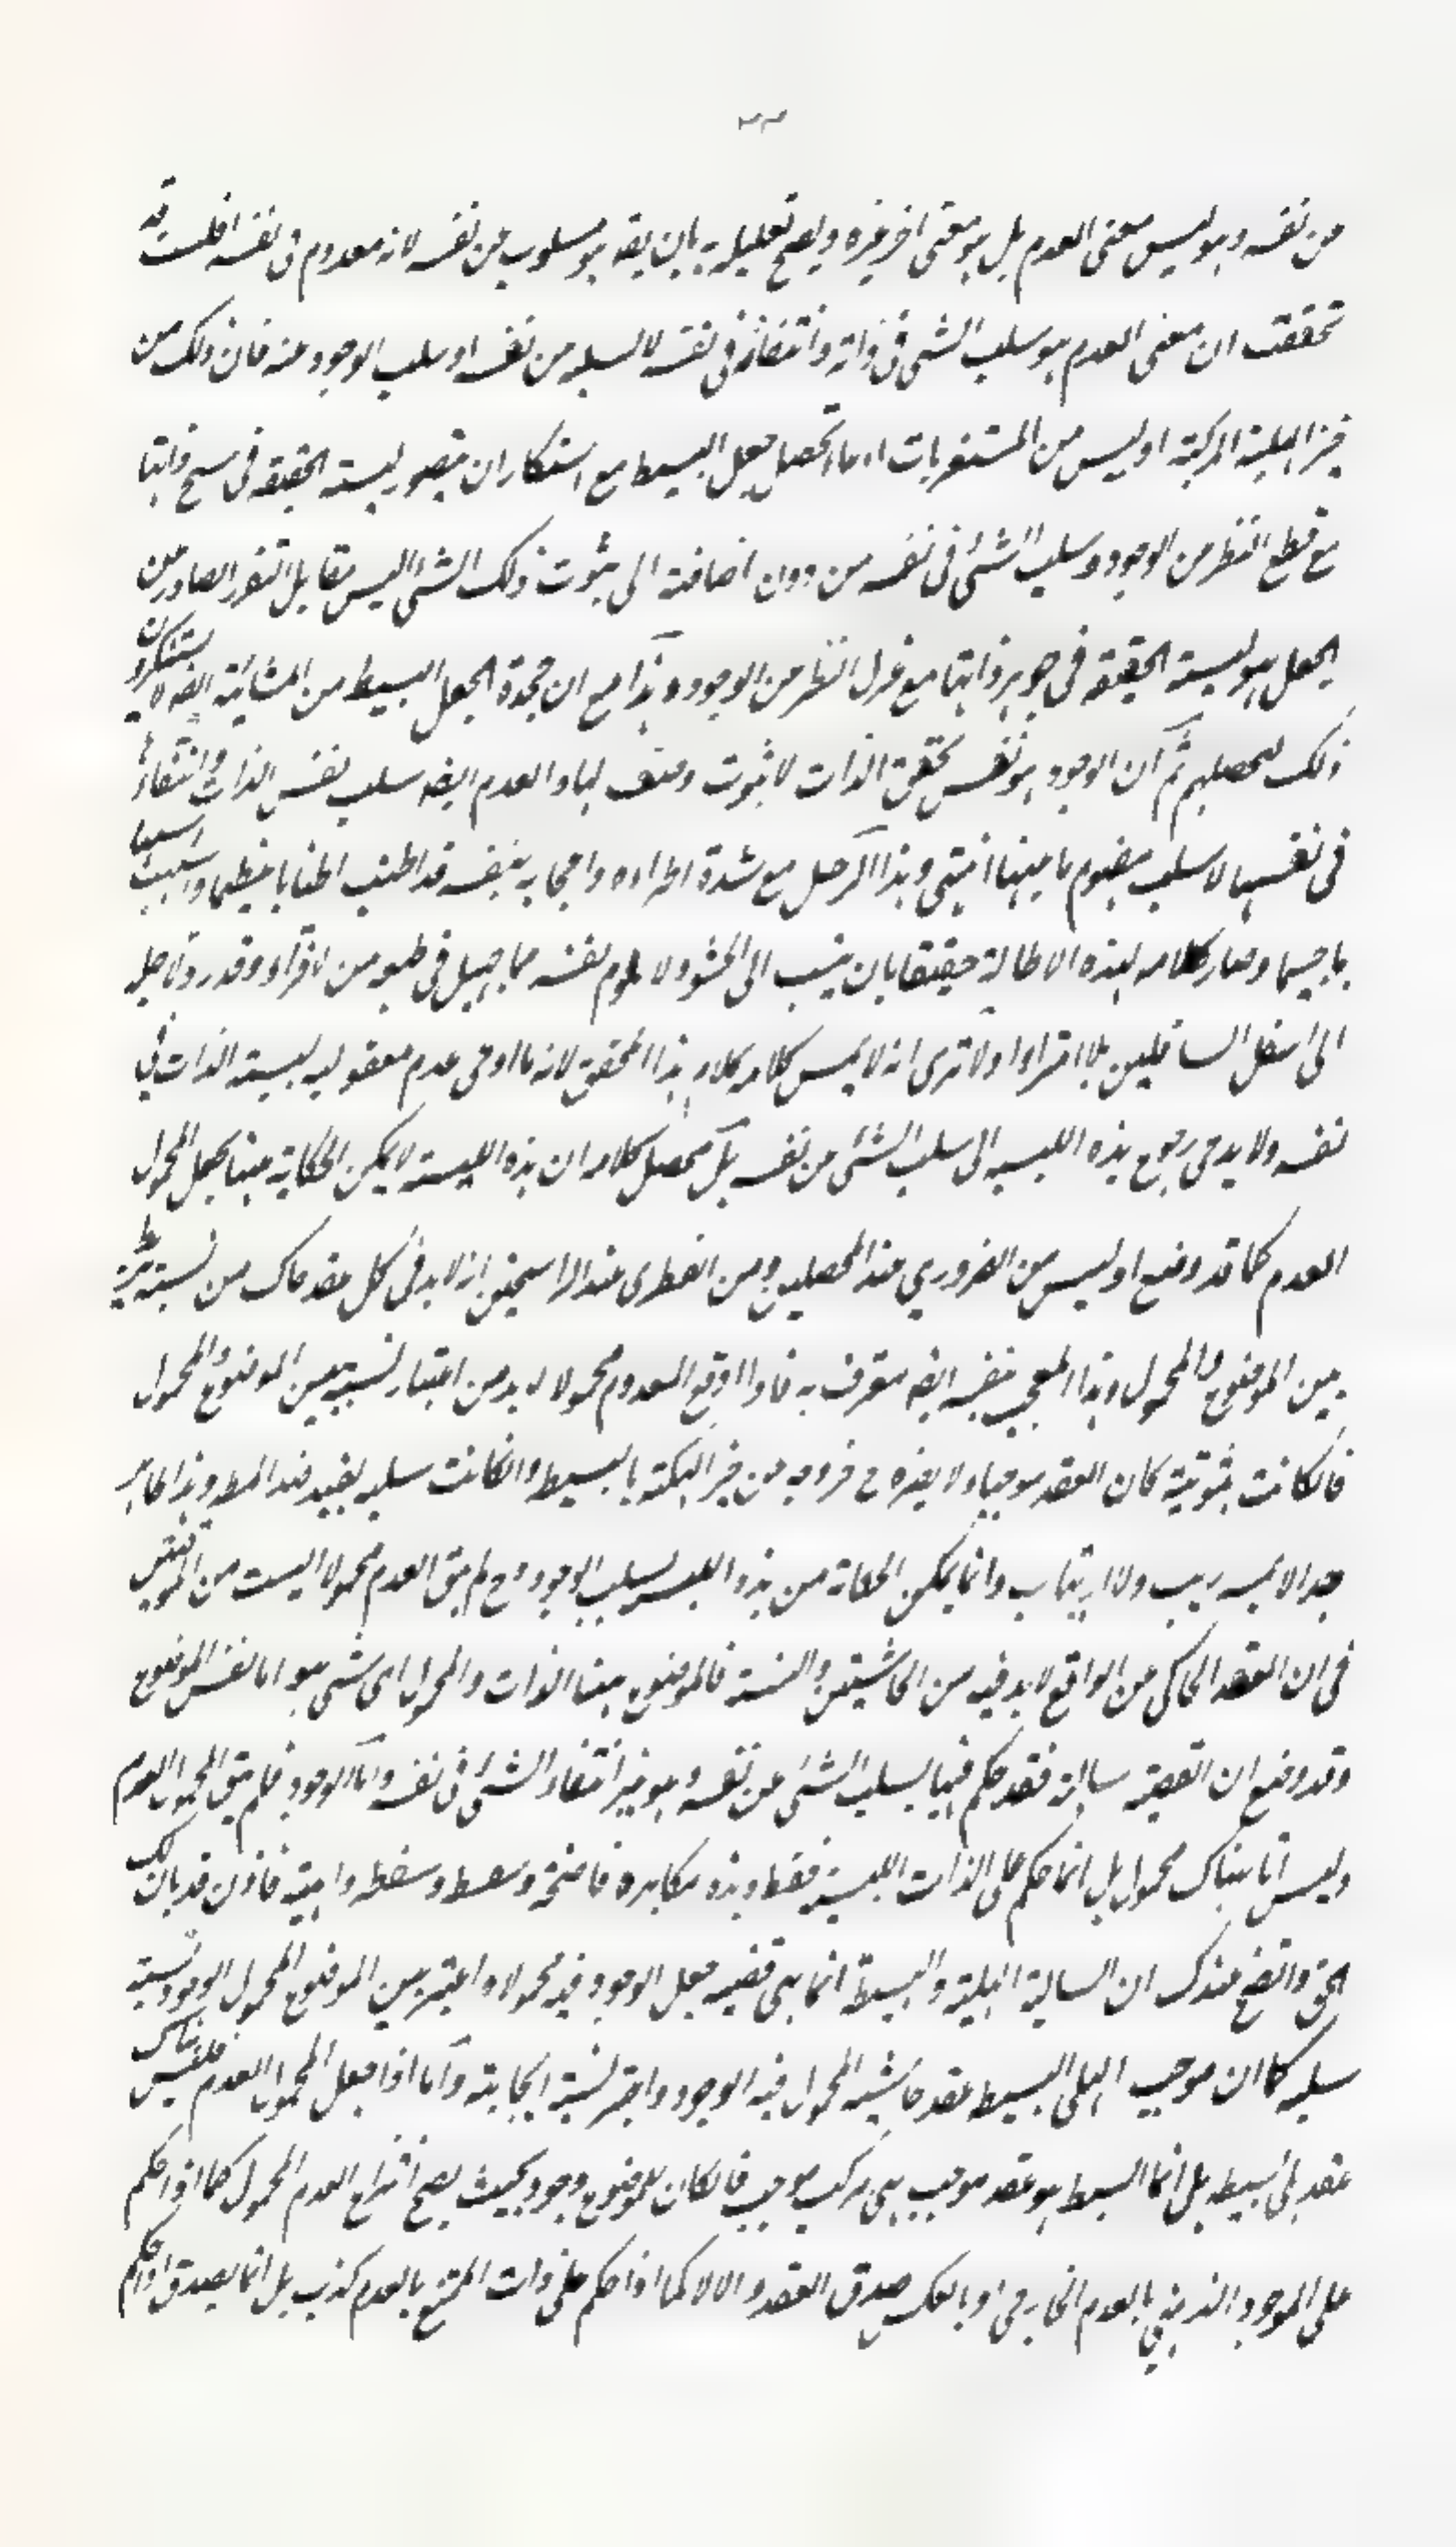 عن نفسه وهو ليس معنى العدم بل هو معنى اخر غيره ويصح تعليله به بان يقه هو مسلوب عن نفسه لانه معدوم فى نفسه افلست قد
تحققت ان معنى العدم هو سلب الشى فى ذاته وانتفائه فى نفسه لا لسلبه عن نفسه او سلب الوجود عنه فان ذلك من
خير الهلية المركبة اوليس من المستغربات ادعاء تحصيل جعل البسيط مع استنكار ان يتصور ليسية الحقيقة فى سنخ ذاتها
مع قطع النظر عن الوجود وسلب الشئ فى نفسه من دون اضافة الى ثبوت ذلك الشئ اليس مقابل التقرر الصادر من
الجعل هو ليسية الحقيقة فى جوهر ذاتها مع عزل النظر عن الوجود وهذا مع ان حجدة الجعل البسيط من المشائية ايضه لا يستنكرون
ذلك لمحصليهم ثم ان الوجود هو نفس تحقق الذات لا ثبوت وصف لها والعدم ايضه سلب نفس الذات وانتفاؤها
فى نفسها لا سلب مفهوم ما عنها انتهى وهذا الرجل مع شدة اطراءه واعجابه بنفسه قد اطنب اطنابا عظيما واسهب اسهابا
جسيما وصار كلامه لهذه الاطالة حقيقا بان ينسب الى الحشو ولا يلوم نفسه مما جبل فى طبعه من الافتراء وقدر وتاجله
الى اسفل السافلين بلا امتراء اولا ترى انه لا يمس كلامه كلام هذا المحقق لانه ما ادعى عدم معقولية ليسية الذات فى
نفسه ولا يدعى رجوع هذه الليسية الى سلب الشئ عن نفسه بل محصل كلامه ان هذه الليسية لا يمكن الحكاية عنها بجعل المحمول
العدم كما قد وضع اوليس من الضرورى عند المحصلين ومن الفطرى عند الراسخين انه لا بد فى كل عقد حاك من نسبة رابطة
بين الموضوع والمحمول وهذا المعجب بنفسه ايضه معترف به فاذا اوقع المعدوم محمولا لا بد من اعتبار نسبة بين الموضوع والمحمول
فان كانت ثبوتية كان العقد موجبا ولا يضره ح خروجه من خير الهلية بالبسيط وان كانت سلبية يفيد ضد المط وهذا ظاهر
جدا لا يمسه ريب ولا ارتياب وانما يمكن الحكاية عن هذه الليسية بسلب الوجود وح لم يبق العدم محمولا الست من الموقنين
فى ان العقد الحاكى عن الواقع لا بد فيه من الحاشيتين والنسبة فالموضوع هنا الذات والمحمول اى شئ هو اما نفس الموضوع
وقد وضع ان القضية سالبة فقد حكم فيها بسلب الشئ عن نفسه وهو غير انتفاء الشئ فى نفسه واما الوجود فلم يبق المحمول العدم
وليس اما هناك محمول بل انما حكم على الذات الليسية فقط وهذه مكابرة فاضحة وسفسطة واهية فاذن قد بان لك
الحق واتضح عندك ان السالبة الهلية والبسيطة انما هى قضية جعل الوجود فيه محمولا واعتبر بين الموضوع والمحمول الوجود نسبة
سلبية كما ان موجب الهلى البسيط عقد حاشيته المحمول فيه الوجود واعتبر نسبة ايجابية واما اذا جعل المحمول العدم فليس هناك
عقد هلى بسيط بل انما البسيط هو عقد موجب هلى مركب موجب فان كان للموضوع وجود بحيث يصح انتزاع العدم المحمول كما اذا حكم
على الموجود الذهنى بالعدم الخارجى او بالعكس صدق العقد والا لا كما اذا حكم على ذات الممتنع بالعدم كذب بل انما يصدق اذا حكم